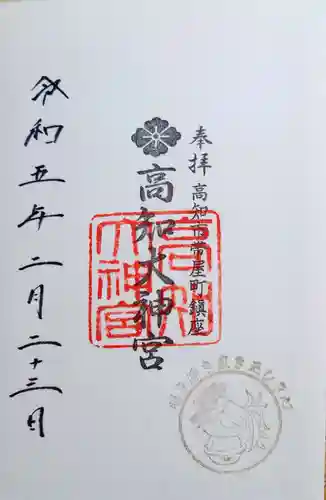 奉拝
高知市帯屋町鎮座
高知大神宮
高知大神宮
令和五年二月二十三日